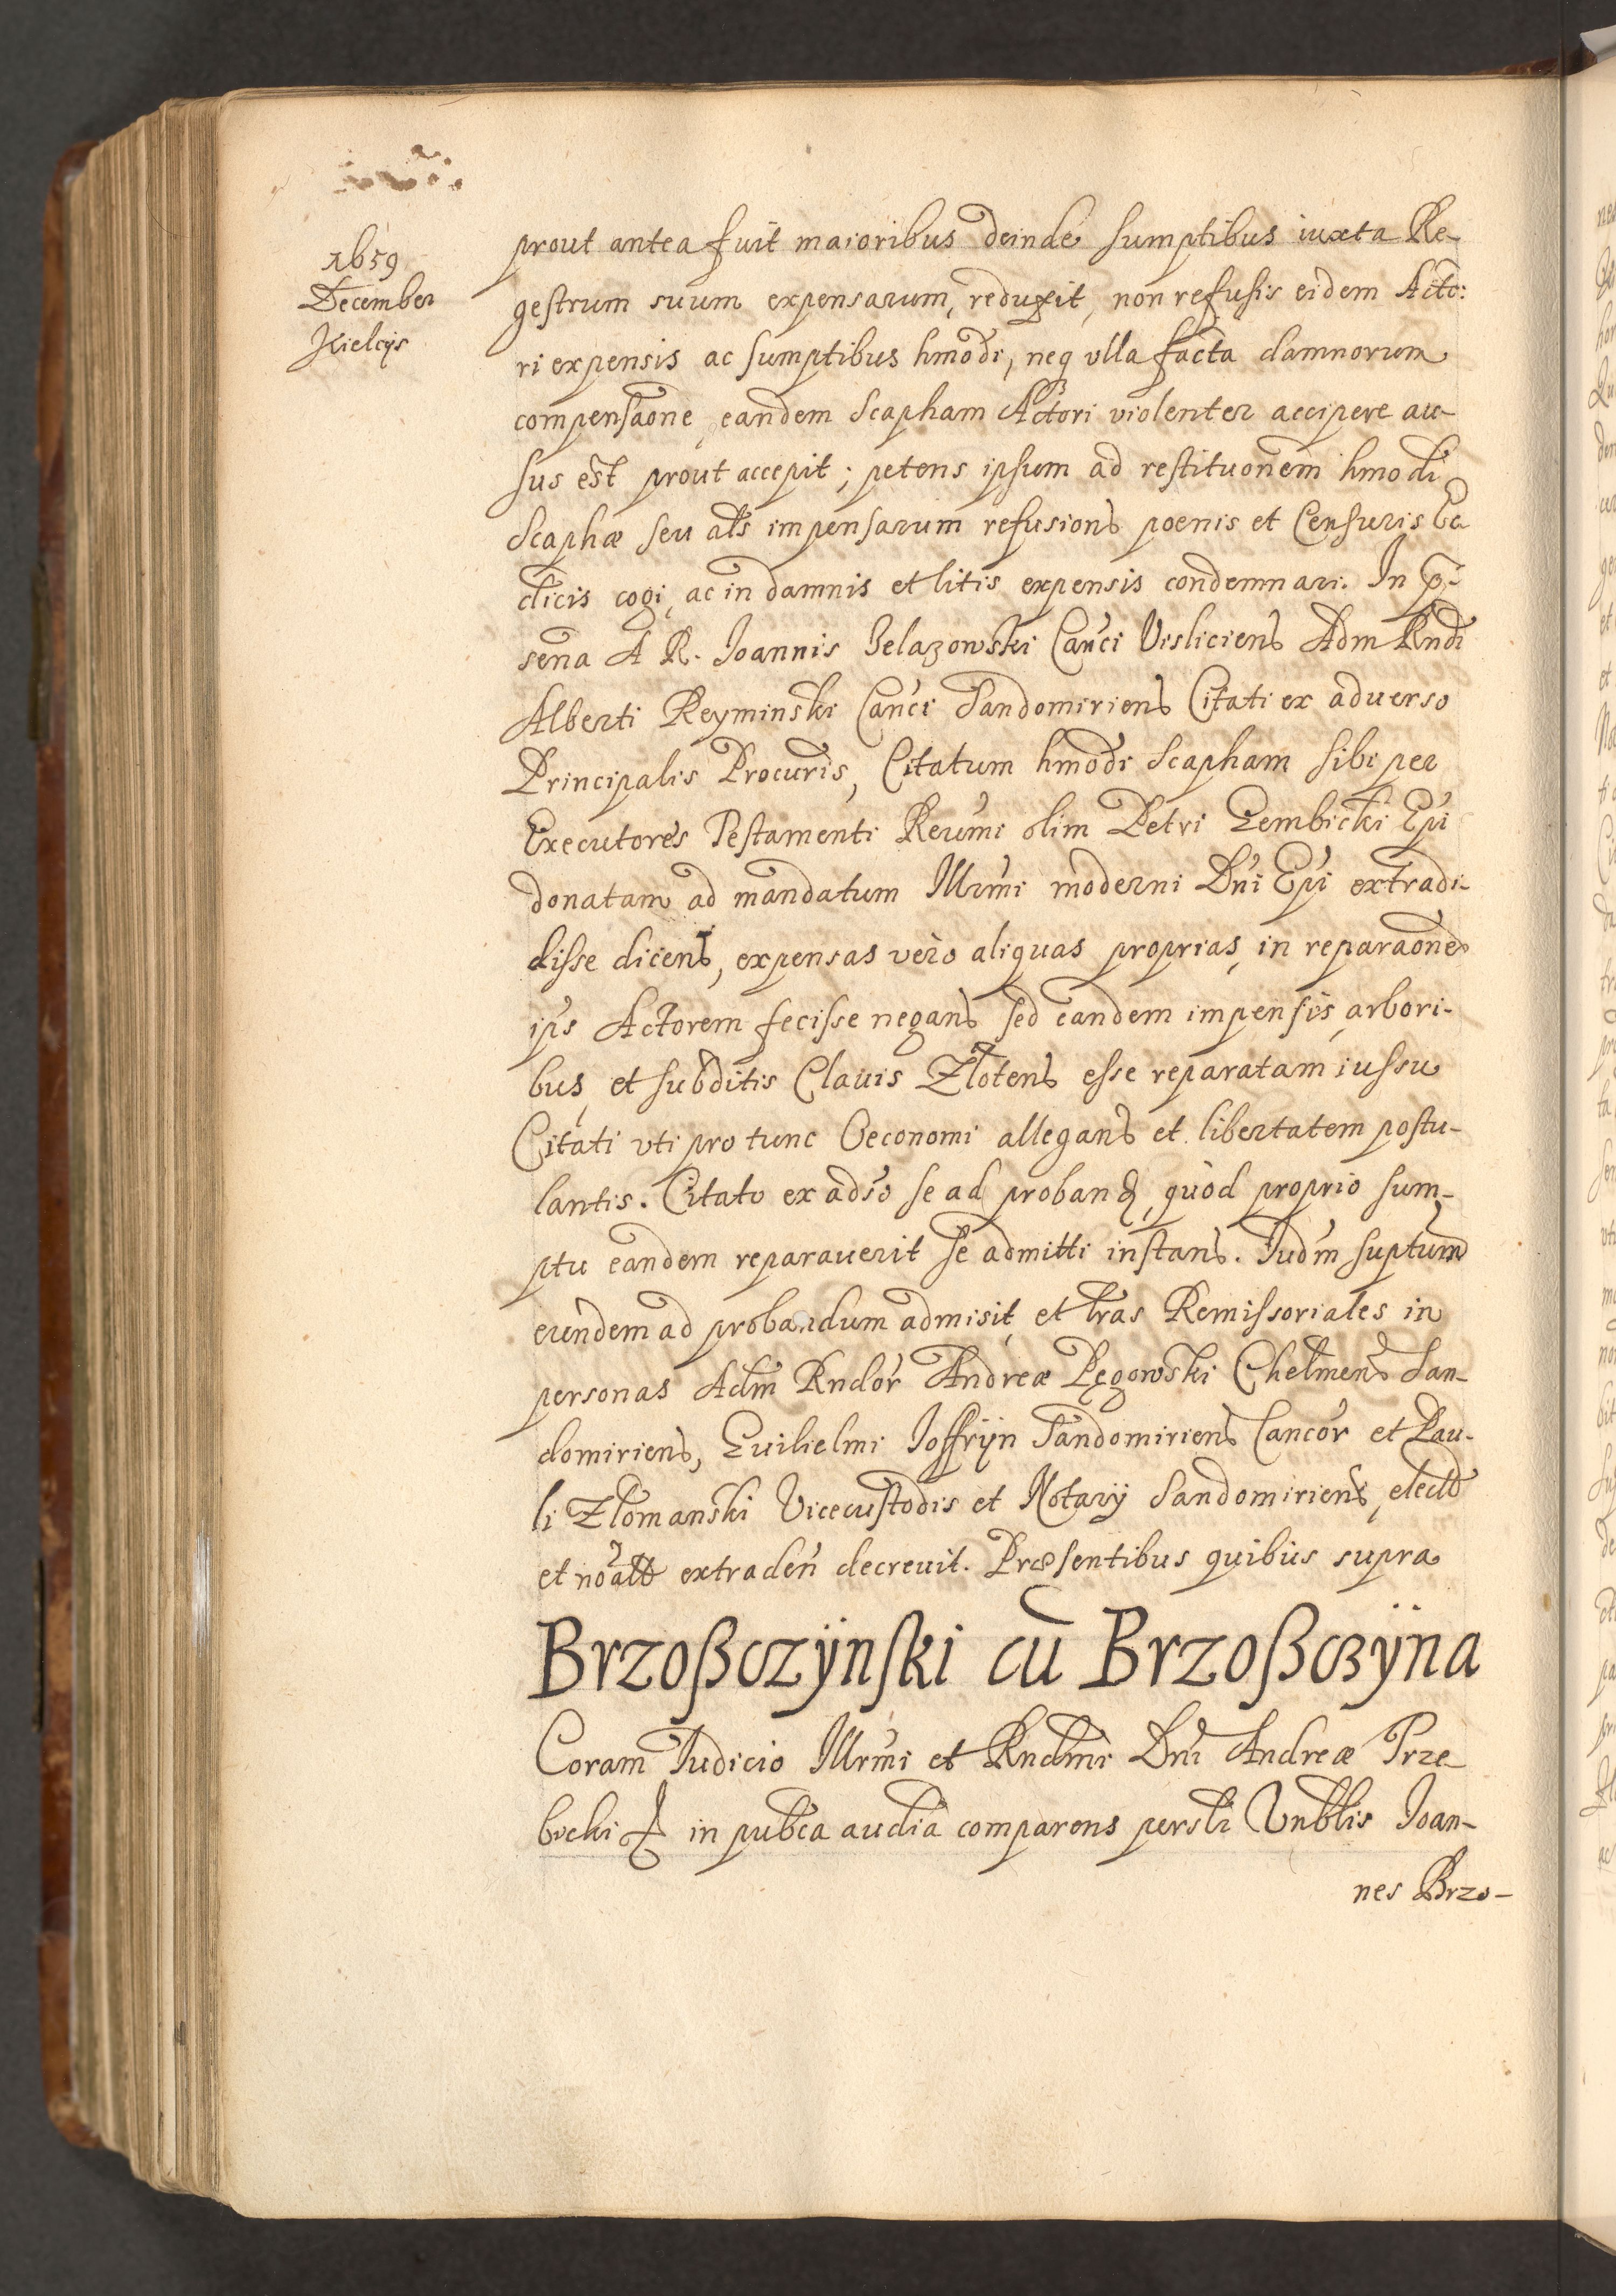 1659
December
Kielcijs
prout antea fuit maioribus deinde sumptibus iuxta Re-
gestrum suum expensarum, reduxit, non refusis eidem Acto:
ri expensis ac sumptibus hmodi, neq vlla facta damnorum
compensaone, eandem Scapham Actori violenter accipere au-
sus est prout accepit; petens ipsum ad restituonem hmodi
Scaphæ seu als impensarum refusions poenis et Censuris Ec
clicis cogi, ac in damnis et litis expensis condemnari. In p-
sena A R. Joannis Zelazowski Canci Visliciens Adm Rndi
Alberti Reyminski Canci Sandomiriens Citati ex aduerso
Principalis Procuris, Citatum hmodi Scapham sibi per
Executores Testamenti Reumi olim Petri Gembicki Epi
donatam ad mandatum Illrmi moderni Dni Epi extradi-
disse dicens, expensas vero aliquas proprias, in reparaone
ips Actorem fecisse negans sed eandem impensis, arbori-
bus, et subditis Clauis Zlotens esse reparatam iussu
Citati vti pro tunc Oeconomi allegans et libertatem postu-
lantis. Citato ex adso se ad proband, quod proprio sum-
ptu eandem reparauerit se admitti instans. Judm suptum
eundem ad probandum admisit, et lras Remissoriales in
personas Adm Rndor Andreæ Pęgowski Chelmens San-
domiriens, Guilielmi Joffrijn Sandomiriens Cancor et Pau-
li Zlomanski Vicecustodis et Notarij Sandomiriens, elect
et noatt extraden decreuit. Præsentibus quibus supra
Brzoßczÿnski cu Brzoßczÿna
Coram Judicio Illrmi et Rndmi Dni Andreæ Trze-
bicki in publca audia comparens persli Vnblis Joan-
nes Brzo-